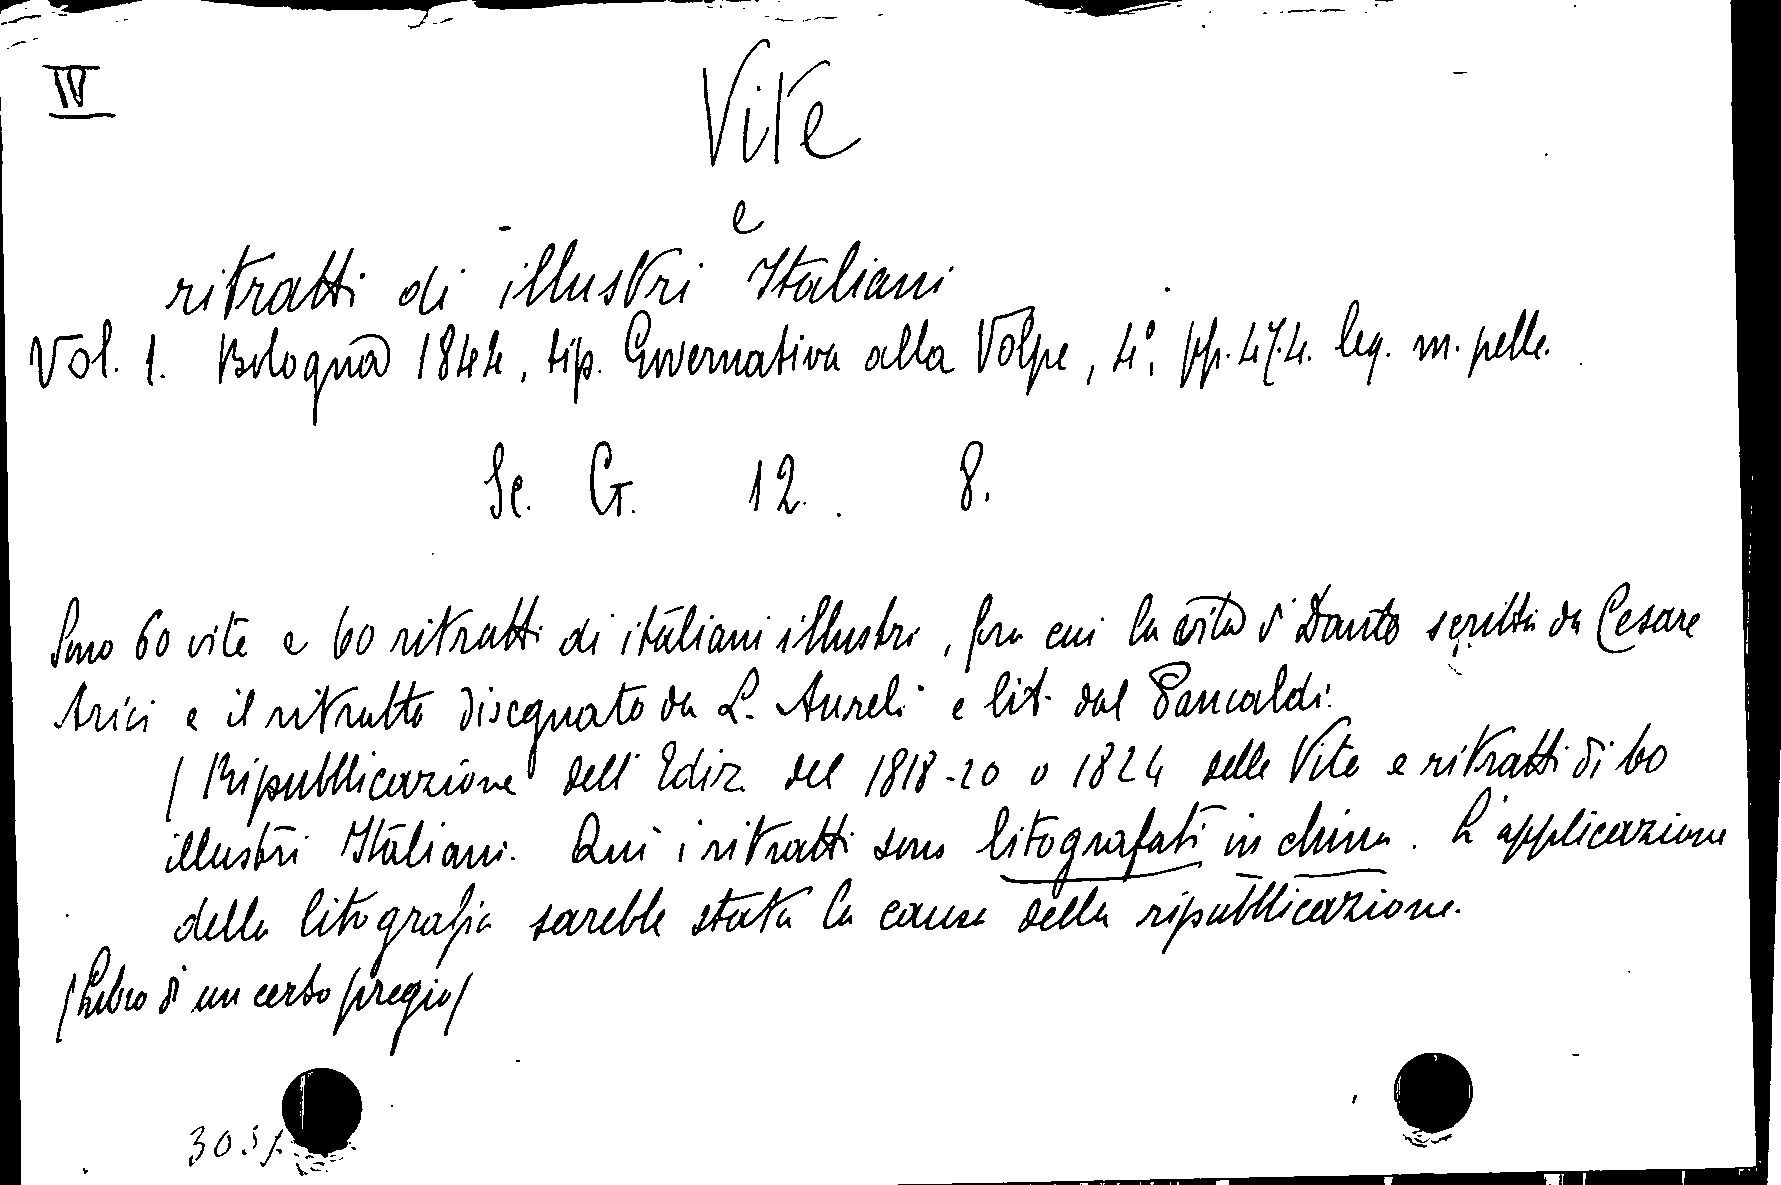 IV
Vite
e
ritratti di illustri Italiani
Vol. 1. Bologna 1844, tip. Governativa alla Volpe, 4°, pp. 474. leg. m. pelle.
Sc. G. 12. 8.
Sono 60 vite e 60 ritratti di italiani illustri, fra cui la vita di Dante scritta da Cesare
Arici e il ritratto disegnato da L. Aureli e lit. dal Pancaldi.
(Ripubblicazione dell' Ediz. del 1818-20 o 1824 delle Vite e ritratti di 60
illustri Italiani. Qui i ritratti sono litografati in china. L'applicazione
della litografia sarebbe stata la causa della ripubblicazione.
(Libro di un certo pregio)